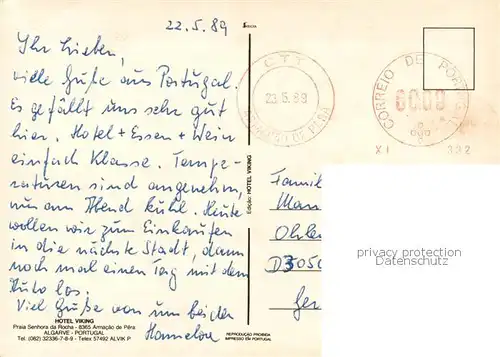 22.5.89
Ihr Lieben,
viele Grüße aus Portugal.
Es gefällt uns sehr gut
hier. Hotel + Essen + Wein
einfach Klasse. Tempe-
raturen sind angenehm,
nur am Abend kühl. Heute
wollen wir zum Einkaufen
in die nächste Stadt, dann
noch mal einen Tag mit dem
Auto los.
Viel Grüße von uns beiden
Hannelore
HOTEL VIKING
Praia Senhora da Rocha - 8365 Armação de Pêra
ALGARVE - PORTUGAL
Tel. (082) 32336-7-8-9 - Telex 57492 ALVIK P
Edição: HOTEL VIKING
REPRODUÇÃO PROIBIDA
IMPRESSO EM PORTUGAL
CTT
23.5.89
DE PÊRA
CORREIO DE PORTUGAL
XI 332
Famil
privacy protection
Datenschutz